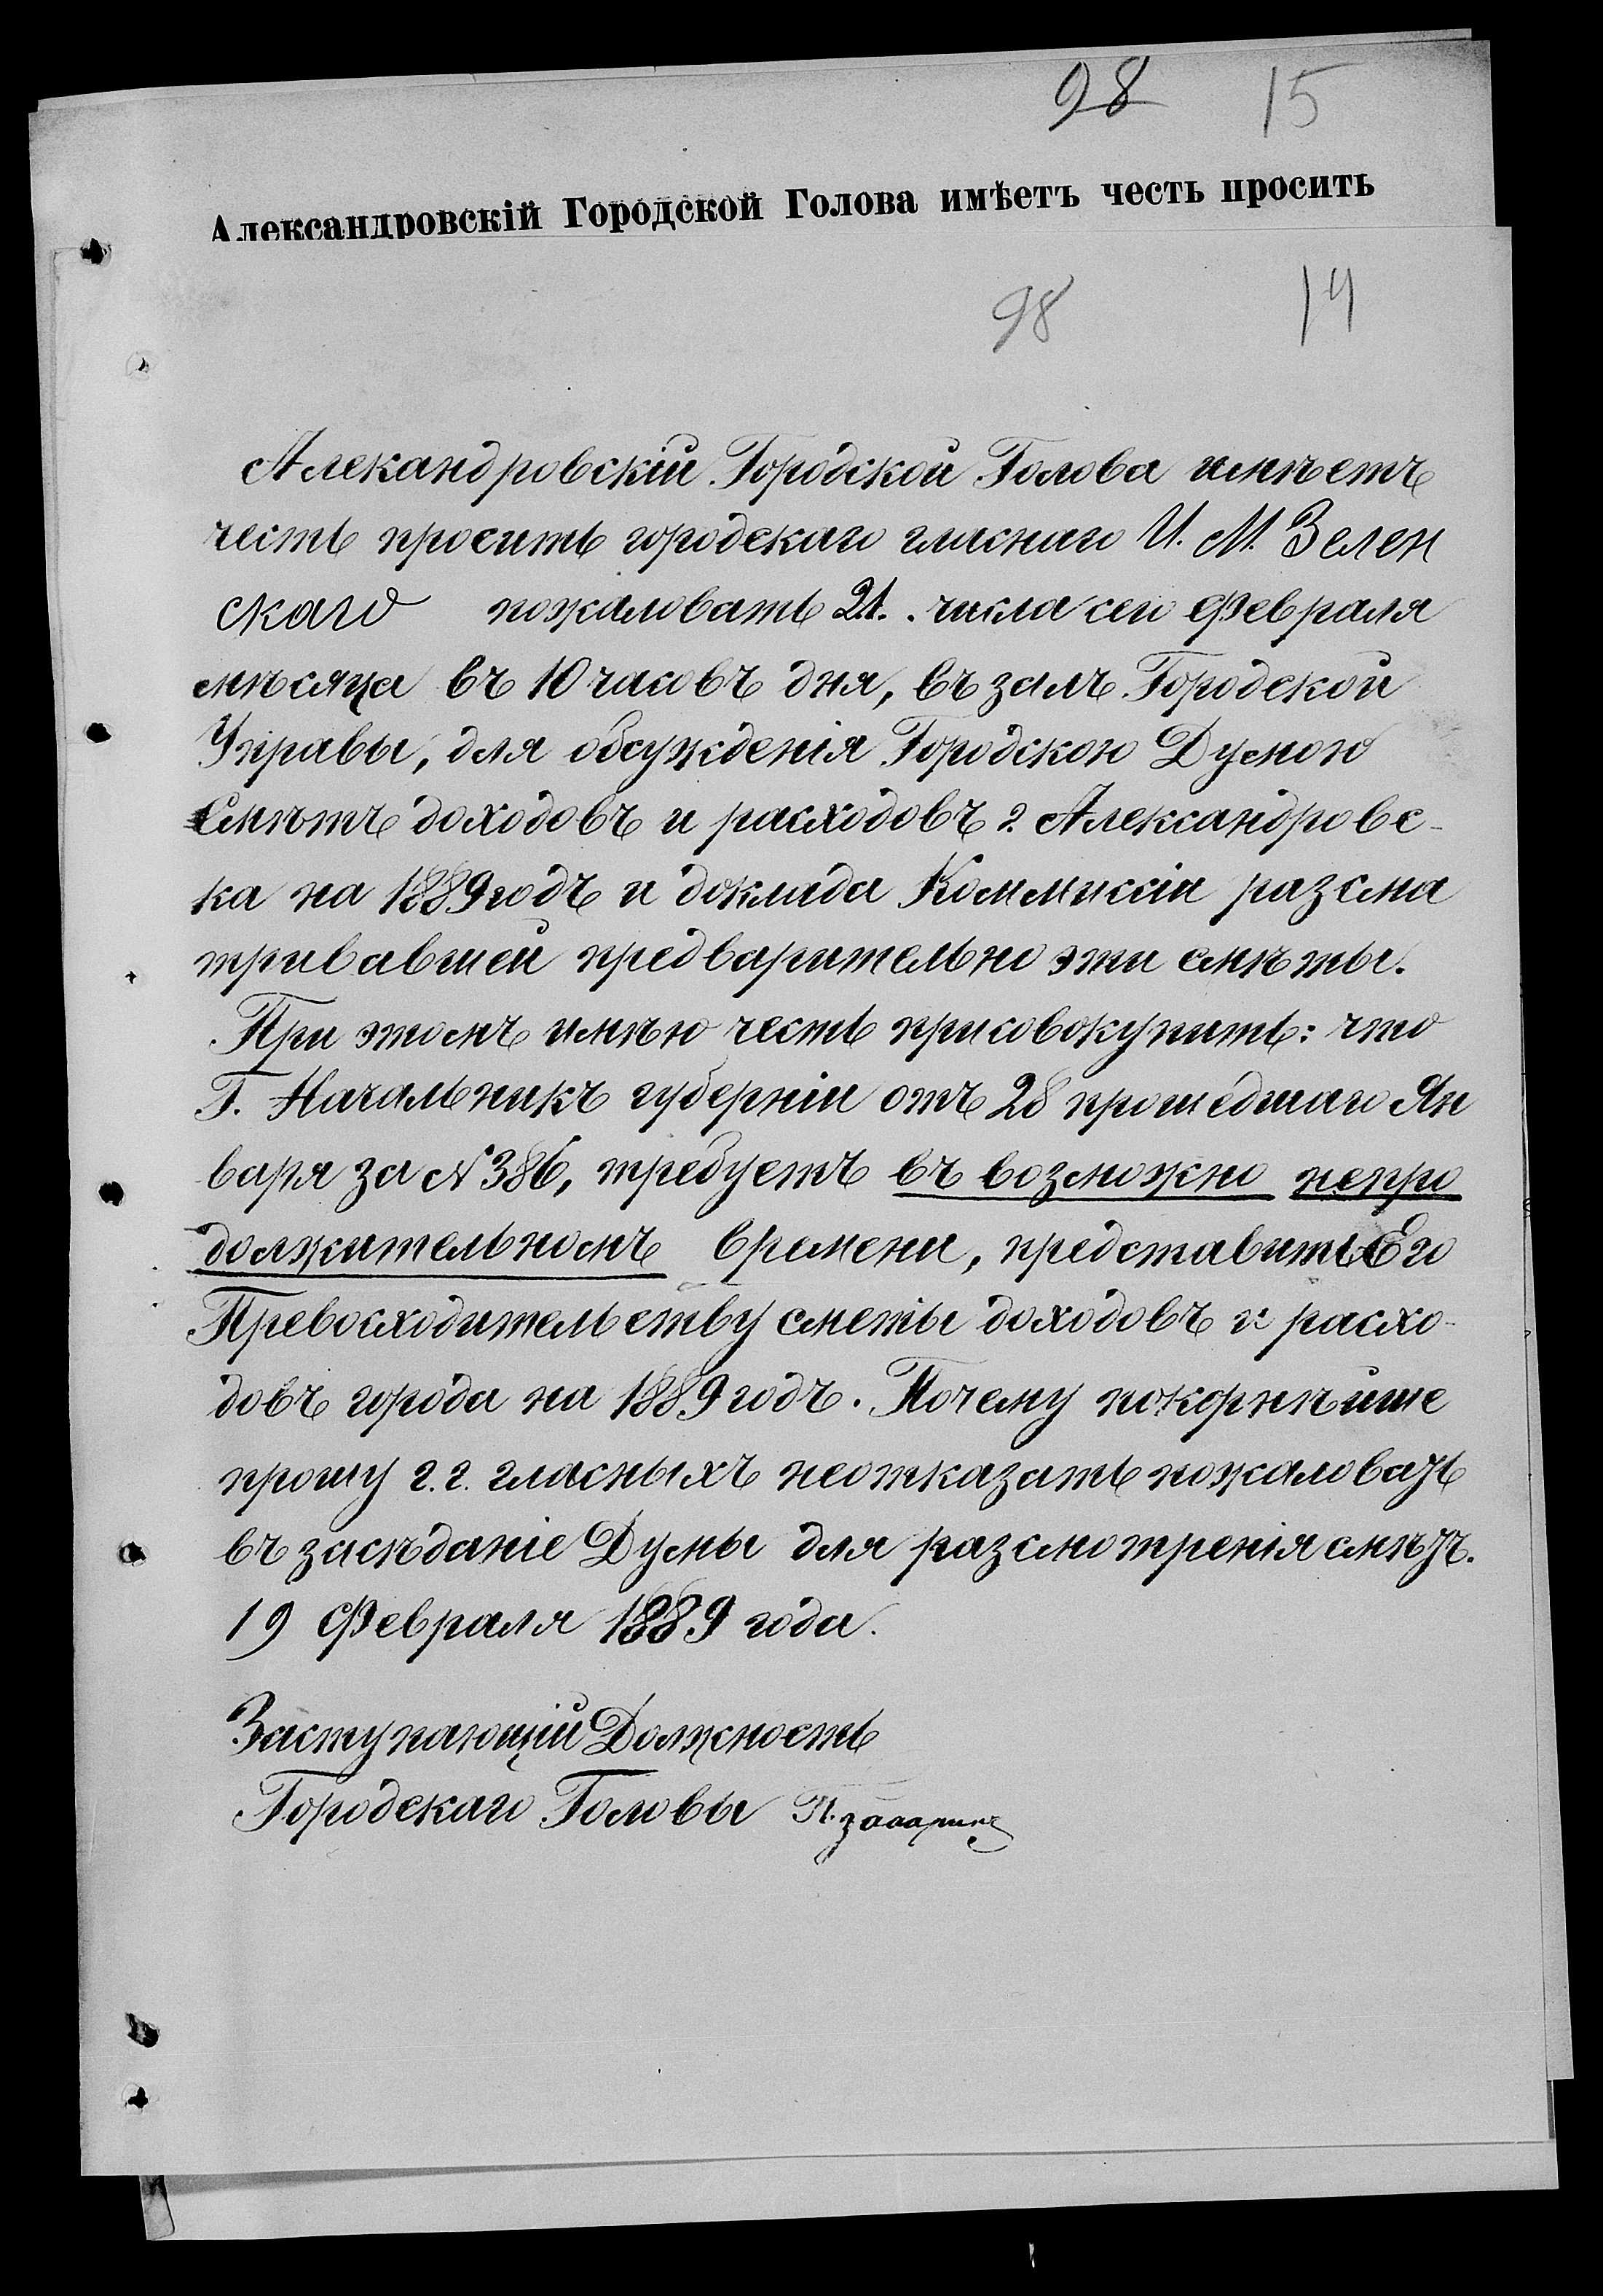 98 15
Александровскій Городской Голова имѣетъ честь просить
98 14
Алекандровскій Городской Голова имѣетъ
честь просить городскаго гласнаго И. М. Зелен
скаго пожаловать 21. числа сего Февраля
мѣсяца въ 10 часовъ дня, въ залъ Городской
Управы, для обсужденія Городскою Думою
Смѣтъ доходовъ и расходовъ г. Александровс-
ка на 1889 годъ и доклада Коммиссіи разсма
тривавшей предварительно эти смѣты.
При этомъ имѣю честь присовокупить: что
Г. Начальникъ губерніи отъ 28 прошедшаго Ян
варя за N 386, требуетъ въ возможно непро
должительномъ времени, представить Его
Превосходительству сметы доходовъ и расхо-
довъ города на 1889 годъ. Почему покорнѣйше
прошу г.г. гласныхъ неотказать пожаловать
въ засѣданіе Думы для разсмотренія смѣтъ.
19 Февраля 1889 года.
Заступающій Должность
Городскаго Головы П.